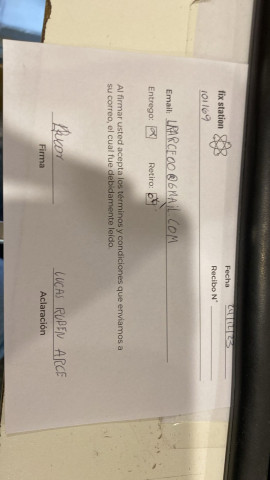 fix station
Fecha
101169
Recibo N°
Email: LRARCE00@GMAIL.COM
Entrego: Retiro:
Al firmar usted acepta los términos y condiciones que enviamos a
su correo, el cual fue debidamente leído.
LUCAS RUBEN ARCE
Firma Aclaración